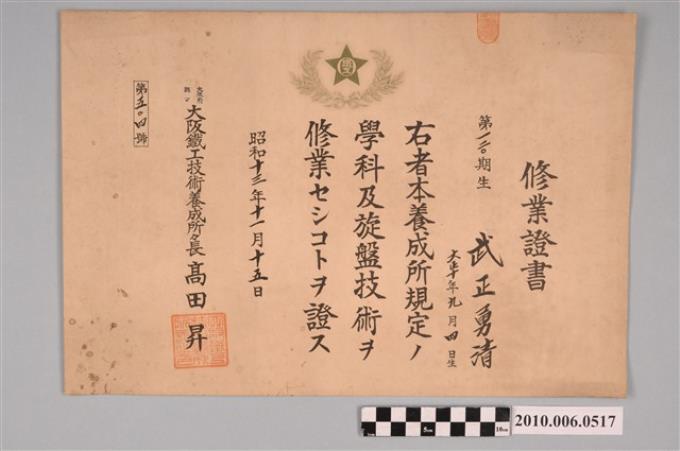 修業證書
第一二〇期生
武正勇清
大正十年九月四日生
右者本養成所規定ノ
學科及旋盤技術ヲ
修業セシコトヲ證ス
昭和十三年十一月十五日
大阪鐵工技術養成所々長 髙田昇
第五〇四號
2010.006.0517
5cm
10cm